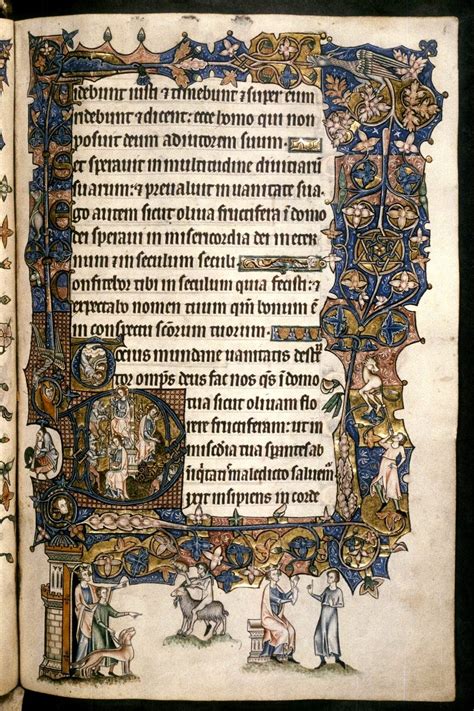 Videbunt iusti & timebunt & super eum
ridebunt & dicent: ecce homo qui non
posuit deum adiutorem suum.
Et sperauit in multitudine diuitiarū
suarum: & preualuit in uanitate sua
Ego autem sicut oliua fructifera ī domo
dei speraui in misericordia dei in eter
num & in seculum seculi
Confitebor tibi in seculum quia fecisti: &
expectabo nomen tuum qm̄ bonum ē
in conspectu scōrum tuorum.
mundane uanitatis
tor omp̄s deus fac nos q̄s ī domo
tua sicut oliuam flo
rere fructiferam: ut in
tua sp̄antes ab
maledicto
Dixit insipiens in corde